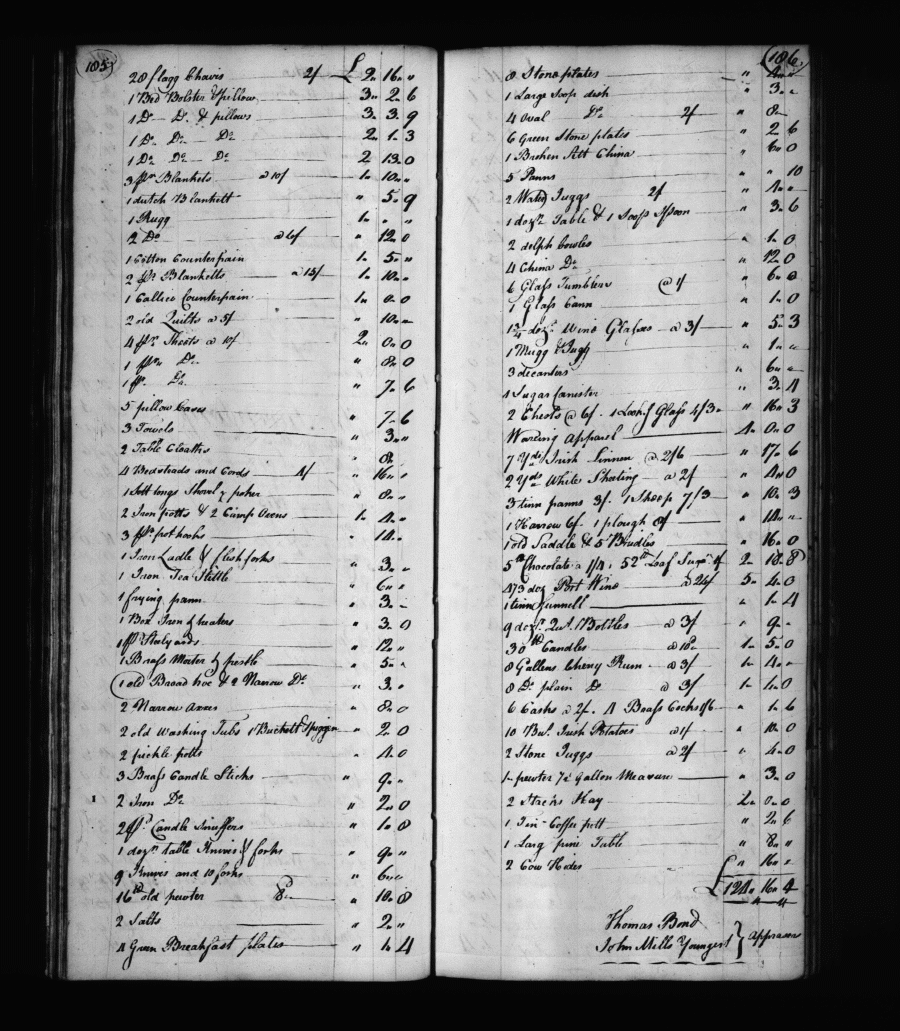 185
28 flagg Chairs 2/ £ 2 " 16 " "
1 Bed Bolster & pillow 3 " 2 " 6
1 Do Do & pillows 3 " 3 " 9
1 Do Do Do 2 " 1 " 3
1 Do Do Do 2 13 " 0
3 pr Blankets a 10/ 1 " 10 " "
1 dutch Blankett " 5 " 9
1 Rugg 1 " " "
2 Do a 6/ " 12 " 0
1 Cotton Counterpain 1 " 5 " "
2 pr Blanketts a 15/ 1 " 10 " "
1 Callico Counterpain 1 " 0 " 0
2 old Quilts a 5/ " 10 " "
4 pr Sheets a 10/ 2 " 0 " 0
1 pr Do " 8 " 0
1 pr Do " 7 " 6
5 pillow Cases " 7 " 6
3 Towels " 3 " "
2 Table Cloaths " 8 "
4 Bedsteads and Cords 4/ " 16 " "
1 Sett tongs Shovel & poker " 8 " "
2 Iron potts & 2 Camp Ovens 1 " 4 " "
3 pr pot hooks " 14 "
1 Iron Ladle & flesh forks " 3 " "
1 Iron Tea Kittle " 6 " "
1 frying pann " 3 "
1 Box Iron & heaters " 3 " 0
1 pr Stalyards " 12 " "
1 Brass Morter & pestle " 5 " "
1 old Broad hoe & 2 Narrow Do " 3 " "
2 Narrow Axes " 8 " 0
2 old Washing Tubs 1 Buckett & piggin " 2 " 0
2 pickle potts " 4 " 0
3 Brass Candle Sticks " 9 "
2 Iron Do " 2 " 0
2 pr Candle Snuffers " 1 " 8
1 dozn table Knives & forks " 9 " "
9 Knives and 10 forks " 6 " "
16 lb old pewter 8d " 10 " 8
2 Salts " 2 " "
4 Green Breakfast plates " 4
186
8 Stone plates " 4 " "
1 Large Soop dish " 3 " "
4 Oval Do 2/ " 8 "
6 Green Stone plates " 2 6
1 Broken Sett China " 6 " 0
5 Panns " " 10
2 Water Juggs 2/ " 4 " "
1 dozn Table & 1 Soop Spoon " 3 " 6
2 delph bowles " 1 " 0
4 China Do " 12 0
6 Glass Tumblers @ 1/ " 6 " 0
1 Glass Cann " 1 " 0
1¾ dozn Wine Glasses a 3/ " 5 " 3
1 Mugg & Jugg " 1 " "
3 decanters " 6 " "
1 Sugar Canister " 3 " 4
2 Chests @ 6/. 1 Lookg Glass 4/3 " 16 " 3
Wareing Apparel 4 " 0 " 0
7 Yds Irish Linnen @ 2/6 " 17 " 6
2 Yds White Sheeting a 2/ " 4 " 0
3 tinn panns 3/. 7/3 " 10 " 3
1 Harrow 6/. 1 plough 8/ " 14 " "
1 old Saddle & 5 Bridles " 16 " 0
5 lb Chocolate a 1/4 : 52 lb Loaf Sugr 1/ 2 " 18 " 8
4 1/3 doz Port Wine a 24/ 5 " 4 " 0
1 tinn funnell " 1 " 4
9 dozn Bottles a 3/ " 9 "
30 lb Candles a 10d 1 " 5 " 0
8 Gallons Cherry Rum a 3/ 1 " 4 " "
8 Do plain Do a 3/ 1 " 4 " 0
6 Casks a 2/. 4 Brass Cocks 1/6 " 1 " 6
10 Bul Irish Potatoes a 1/ " 10 " 0
2 Stone Juggs a 2/ " 4 " 0
1 pewter ½ Gallon Measure " 3 " 0
2 Stacks Hay 2 " 0 " 0
1 Tin Coffee pott " 2 " 6
1 Larg pine Table " 8 " "
2 Cow Hides " 16 " "
£ 124 " 16 " 4
Thomas Bond
John Mills Youngest } Appraisers